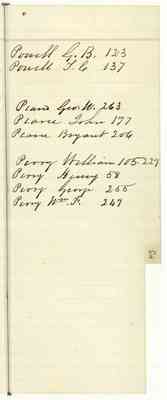 Powell G. B. 123
Powell T. C 137
Pearce Geo. W. 263
Pearce John 177
Pearce Bryant 206
Perry William 105 229
Perry Henry 58
Perry George 255
Perry Wm. F. 249